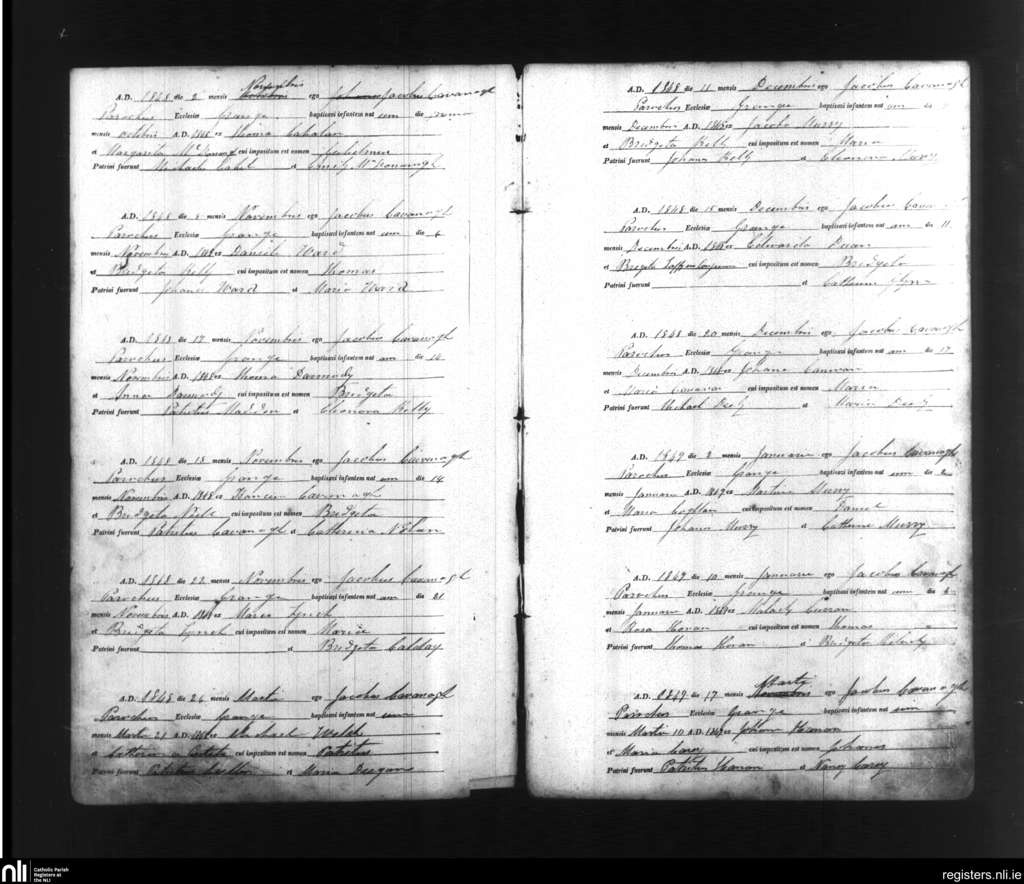 A.D. 1848 die 2 mensis Novembris ego Jacobus Cavanagh
Parochus Ecclesiæ Grange baptizavi infantem nat um die
mensis Octobris A.D. 1848 ex Thoma Cahalan
et Margarita McDonogh cui impositum est nomen Gulielmum
Patrini fuerunt Michaele Cahel et McDonaugh
A.D. 1848 die mensis Novembris ego Jacobus Cavanagh
Parochus Ecclesiæ Grange baptizavi infantem nat um die 4
mensis Novembris A.D. 1848 ex Daniele Ward
et Bridgeta Kelly cui impositum est nomen Thomas
Patrini fuerunt Johanes Ward et Maria Ward
A.D. 1848 die 17 mensis Novembris ego Jacobus Cavanagh
Parochus Ecclesiæ Grange baptizavi infantem nat um die 16
mensis Novembris A.D. 1848 ex Thoma Darmody
et Anna Darmody cui impositum est nomen Bridgeta
Patrini fuerunt Patritius Madden et Eleonora Kelly
A.D. 1848 die 18 mensis Novembris ego Jacobus Cavanagh
Parochus Ecclesiæ Grange baptizavi infantem nat um die 14
mensis Novembris A.D. 1848 ex Cavanagh
et Bridgeta cui impositum est nomen Bridgeta
Patrini fuerunt Patritius Cavanagh et Catherina
A.D. 1848 die 22 mensis Novembris ego Jacobus Cavanagh
Parochus Ecclesiæ Grange baptizavi infantem nat um die 21
mensis Novembris A.D. 1848 ex Lynch
et Bridgeta Lynch cui impositum est nomen Maria
Patrini fuerunt et Bridgeta Calday
A.D. 1848 die 26 mensis Martii ego Jacobus Cavanagh
Parochus Ecclesiæ Grange baptizavi infantem nat um
mensis Martii 21 A.D. 1848 ex Michaele Welsh
et cui impositum est nomen Patritius
Patrini fuerunt Patritius et Maria Deegan
A.D. 1848 die 11 mensis Decembris ego Jacobus Cavanagh
Parochus Ecclesiæ Grange baptizavi infantem nat um
mensis Decembris A.D. 1848 ex Jacobo Murry
et Bridgeta Kelly cui impositum est nomen Maria
Patrini fuerunt Johanes Kelly et Eleonora
A.D. 1848 die 15 mensis Decembris ego Jacobus Cava
Parochus Ecclesiæ Grange baptizavi infantem nat um die 11
mensis Decembris A.D. 1848 ex Edwardo
et cui impositum est nomen Bridgeta
Patrini fuerunt et Catherina
A.D. 1848 die 20 mensis Decembris ego Jacobus Cavanagh
Parochus Ecclesiæ Grange baptizavi infantem nat um die 17
mensis Decembris A.D. 1848 ex Johane Canavan
et Maria Canavan cui impositum est nomen Maria
Patrini fuerunt Michael Deely et Maria Deely
A.D. 1849 die 2 mensis Januarii ego Jacobus Cavanagh
Parochus Ecclesiæ Grange baptizavi infantem nat um die 2
mensis Januarii A.D. 1849 ex Martino Murry
et Maria Coghlan cui impositum est nomen Daniel
Patrini fuerunt Johanes Murry et Catherina Murry
A.D. 1849 die 10 mensis Januarii ego Jacobus Cavanagh
Parochus Ecclesiæ Grange baptizavi infantem nat um die 6
mensis Januarii A.D. 1849 ex Malachy Curran
et Rosa Horan cui impositum est nomen Thomas
Patrini fuerunt Thomas Horan et Bridgeta
A.D. 1849 die 17 mensis Martii ego Jacobus Cavanagh
Parochus Ecclesiæ Grange baptizavi infantem nat um
mensis Martii 10 A.D. 1849 ex Johane Hanan
et Maria Carey cui impositum est nomen Johanes
Patrini fuerunt Patritius Hanan et Nancy Carey
nli
Catholic Parish
Registers at
the NLI
registers.nli.ie